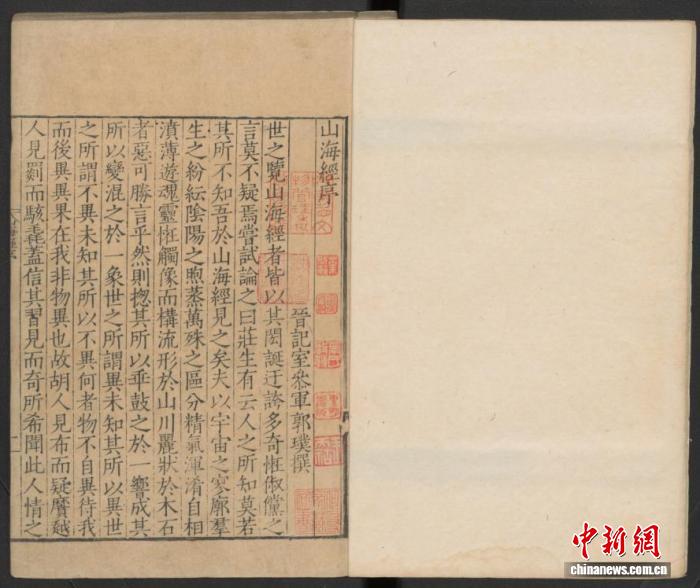 山海經序
晉記室叅軍郭璞撰
世之覽山海經者皆以其閎誕迂誇多奇恠俶儻之
言莫不疑焉嘗試論之曰莊生有云人之所知莫若
其所不知吾於山海經見之矣夫以宇宙之寥廓羣
生之紛紜陰陽之煦蒸萬殊之區分精氣渾淆自相
濆薄遊魂靈恠觸像而構流形於山川麗狀於木石
者惡可勝言乎然則揔其所以乖鼓之於一響成其
所以變混之於一象世之所謂異未知其所以異世
之所謂不異未知其所以不異何者物不自異待我
而後異異果在我非物異也故胡人見布而疑黂越
人見罽而駭毳蓋信其習見而奇所希聞此人情之
中新网
chinanews.com.cn